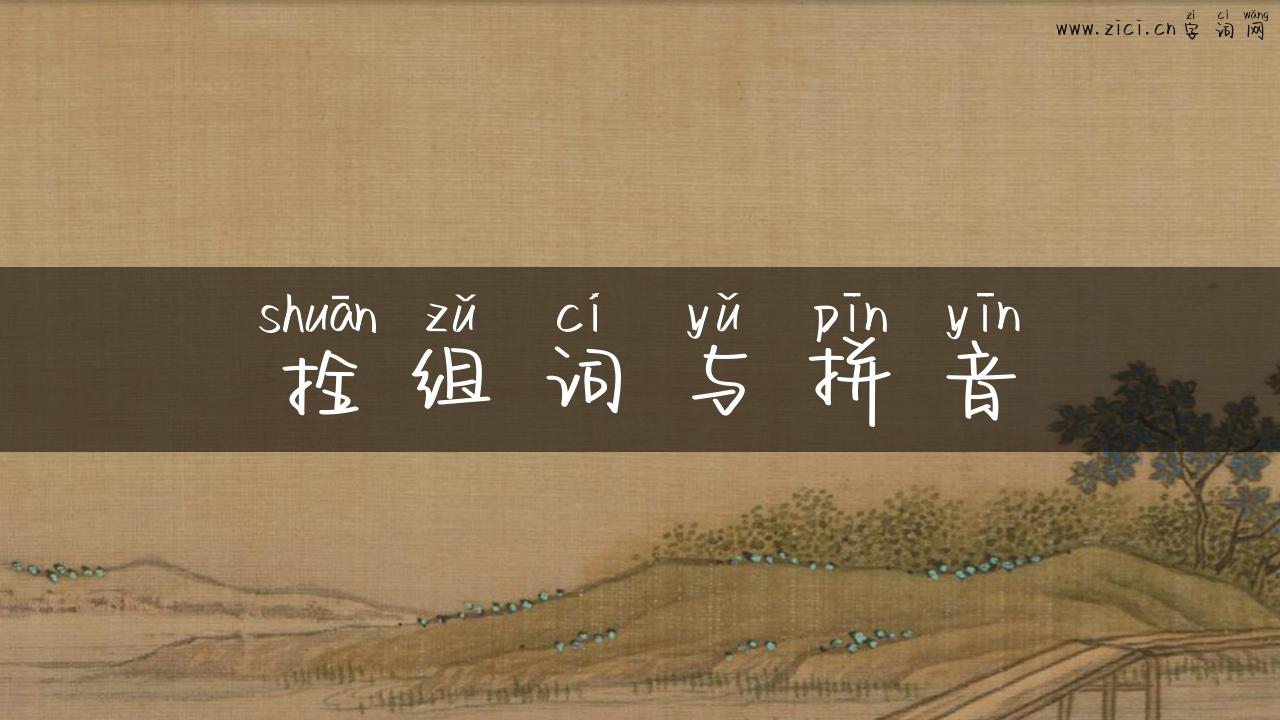 zì cí wǎng
www.zici.cn 字词网
shuān zǔ cí yǔ pīn yīn
拴组词与拼音